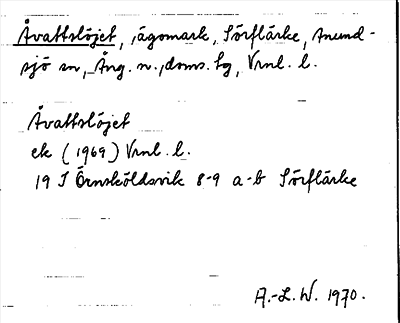 Åvattslöjet, ägomark, Sörflärke, Anund-
sjö sn, Ång. n., doms. lg, Vrnl. l.
Åvattslöjet
ek (1969) Vrnl. l.
19 J Örnsköldsvik 8-9 a-b Sörflärke
A.-L. W. 1970.